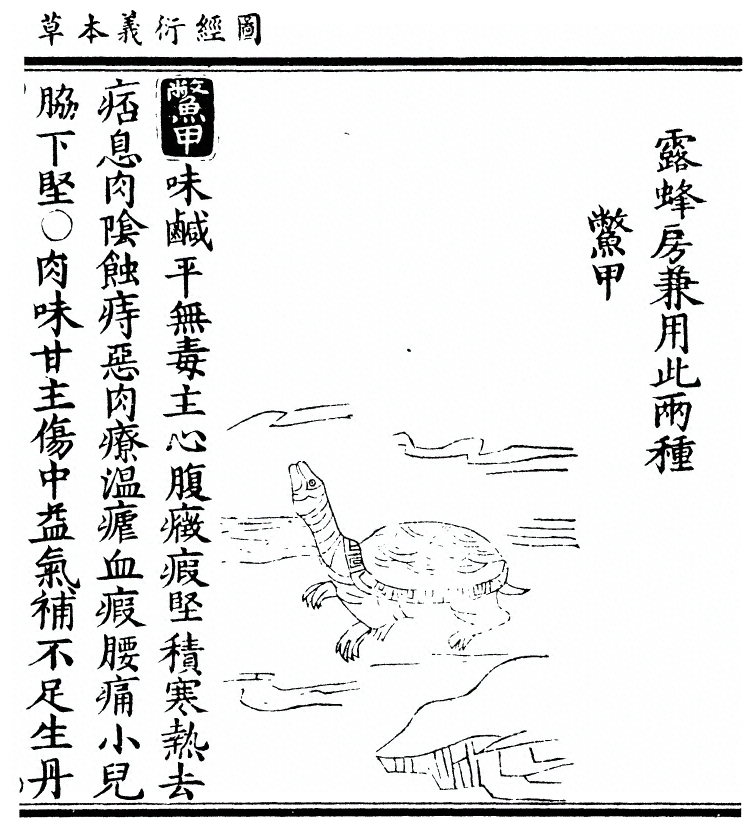 草本義衍經圖
露蜂房兼用此兩種
鱉甲
鱉甲味鹹平無毒主心腹癥瘕堅積寒熱去
痞息肉陰蝕痔惡肉療温瘧血瘕腰痛小兒
脇下堅○肉味甘主傷中益氣補不足生丹